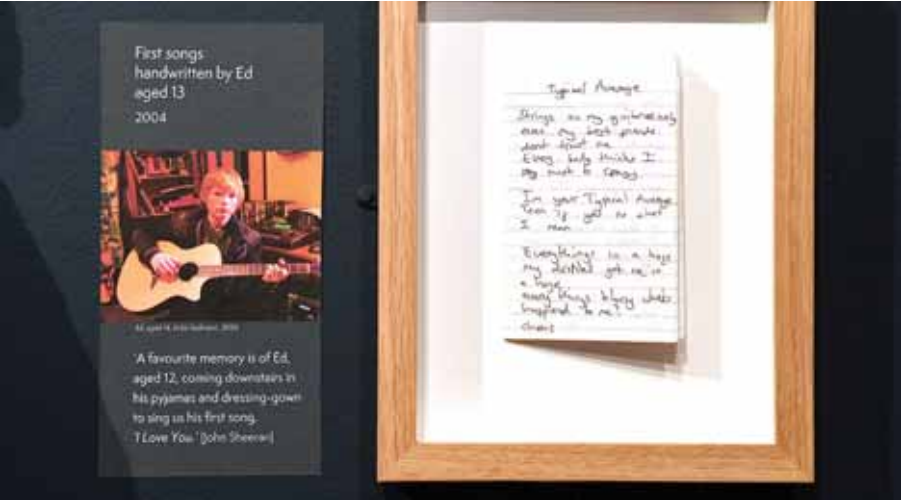 First songs
handwritten by Ed
aged 13
2004
Ed, aged 14, in his bedroom, 2005
'A favourite memory is of Ed,
aged 12, coming downstairs in
his pyjamas and dressing-gown
to sing us his first song,
'I Love You.' [John Sheeran]
Typical Average
Strings on my
even my best
dont trust me
Every body thinks I
must be
Im your Typical Average
Teen if you no what
I mean
Everythings in a haze
my got me in
a
every things blurry whats
happened to me?
chorus